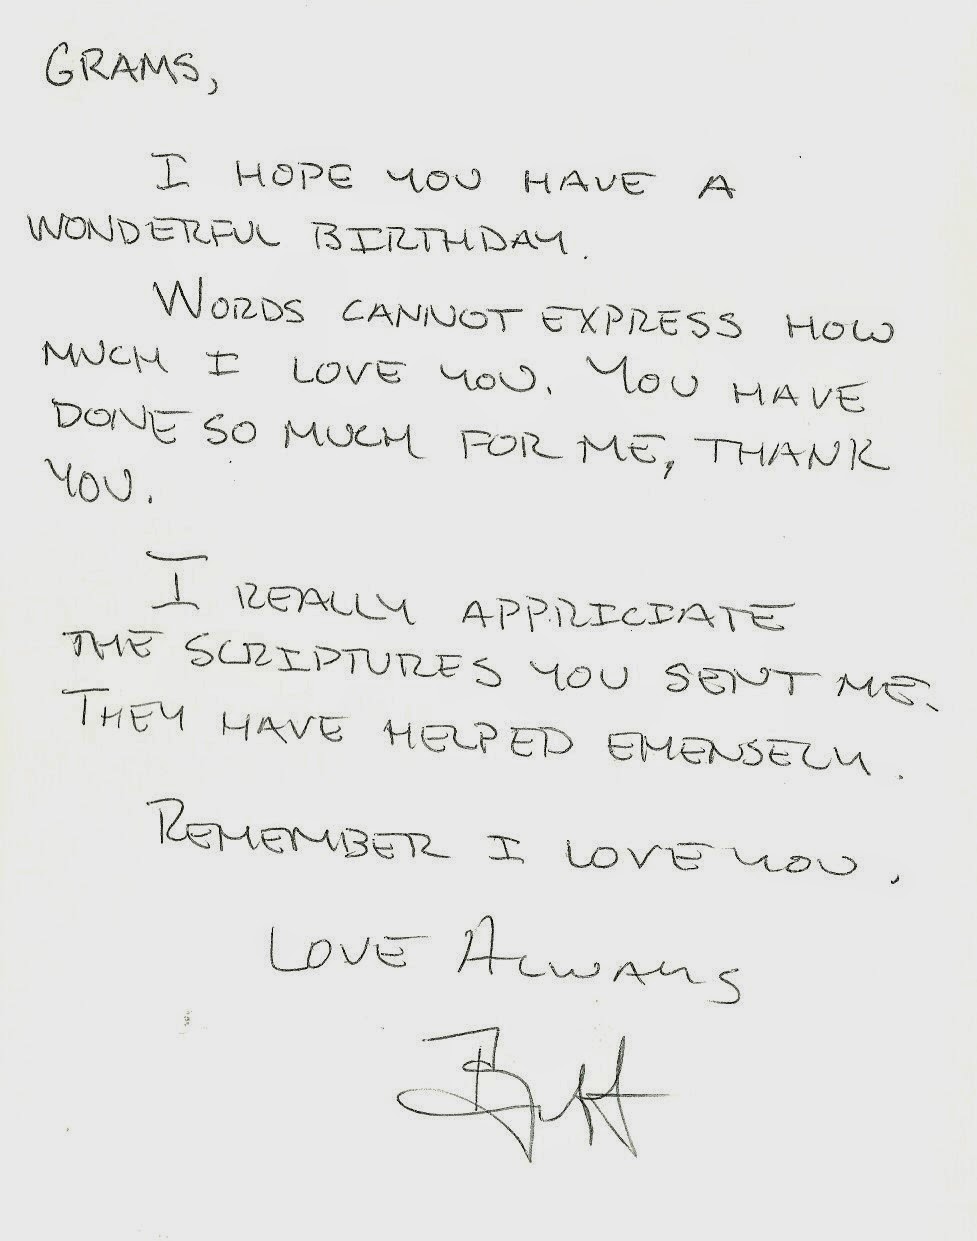 GRAMS,
I HOPE YOU HAVE A
WONDERFUL BIRTHDAY.
WORDS CANNOT EXPRESS HOW
MUCH I LOVE YOU. YOU HAVE
DONE SO MUCH FOR ME, THANK
YOU.
I REALLY APPRICIATE
THE SCRIPTURES YOU SENT ME.
THEY HAVE HELPED EMENSELY.
REMEMBER I LOVE YOU.
LOVE ALWAYS